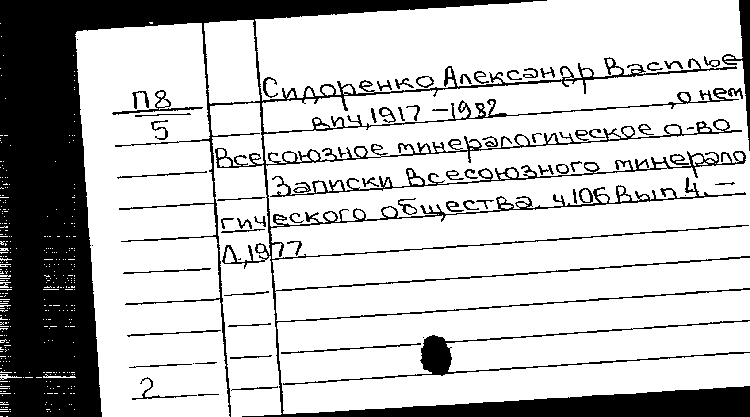 П8
5
Сидоренко, Александр Василье
вич, 1917 - 1982 , о нем
Всесоюзное минералогическое о-во
Записки Всесоюзного минерало
гического общества. ч.106 Вып 4. -
Л, 1977
2